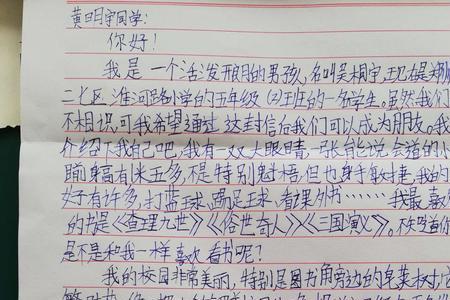 黄明宇同学:
你好!
我是一个活泼开朗的男孩,名叫吴桐宇,现在是郑州
二七区淮河路小学的五年级(2)班的一名学生。虽然我们
不相识,可我希望通过这封信后我们可以成为朋友。我
介绍下我自己吧,我有一双大眼睛,一张能说会道的小
前身高有米五多,不是特别魁梧,但也身手敏捷,我的
好有许多,打蓝球、踢足球、看课外书……我最喜欢
的书是《查理九世》《俗世奇人》《三国演义》。不知道你
是不是和我一样喜欢看书呢?
我的校园非常美丽,特别是图书角旁边的皂荚树,它